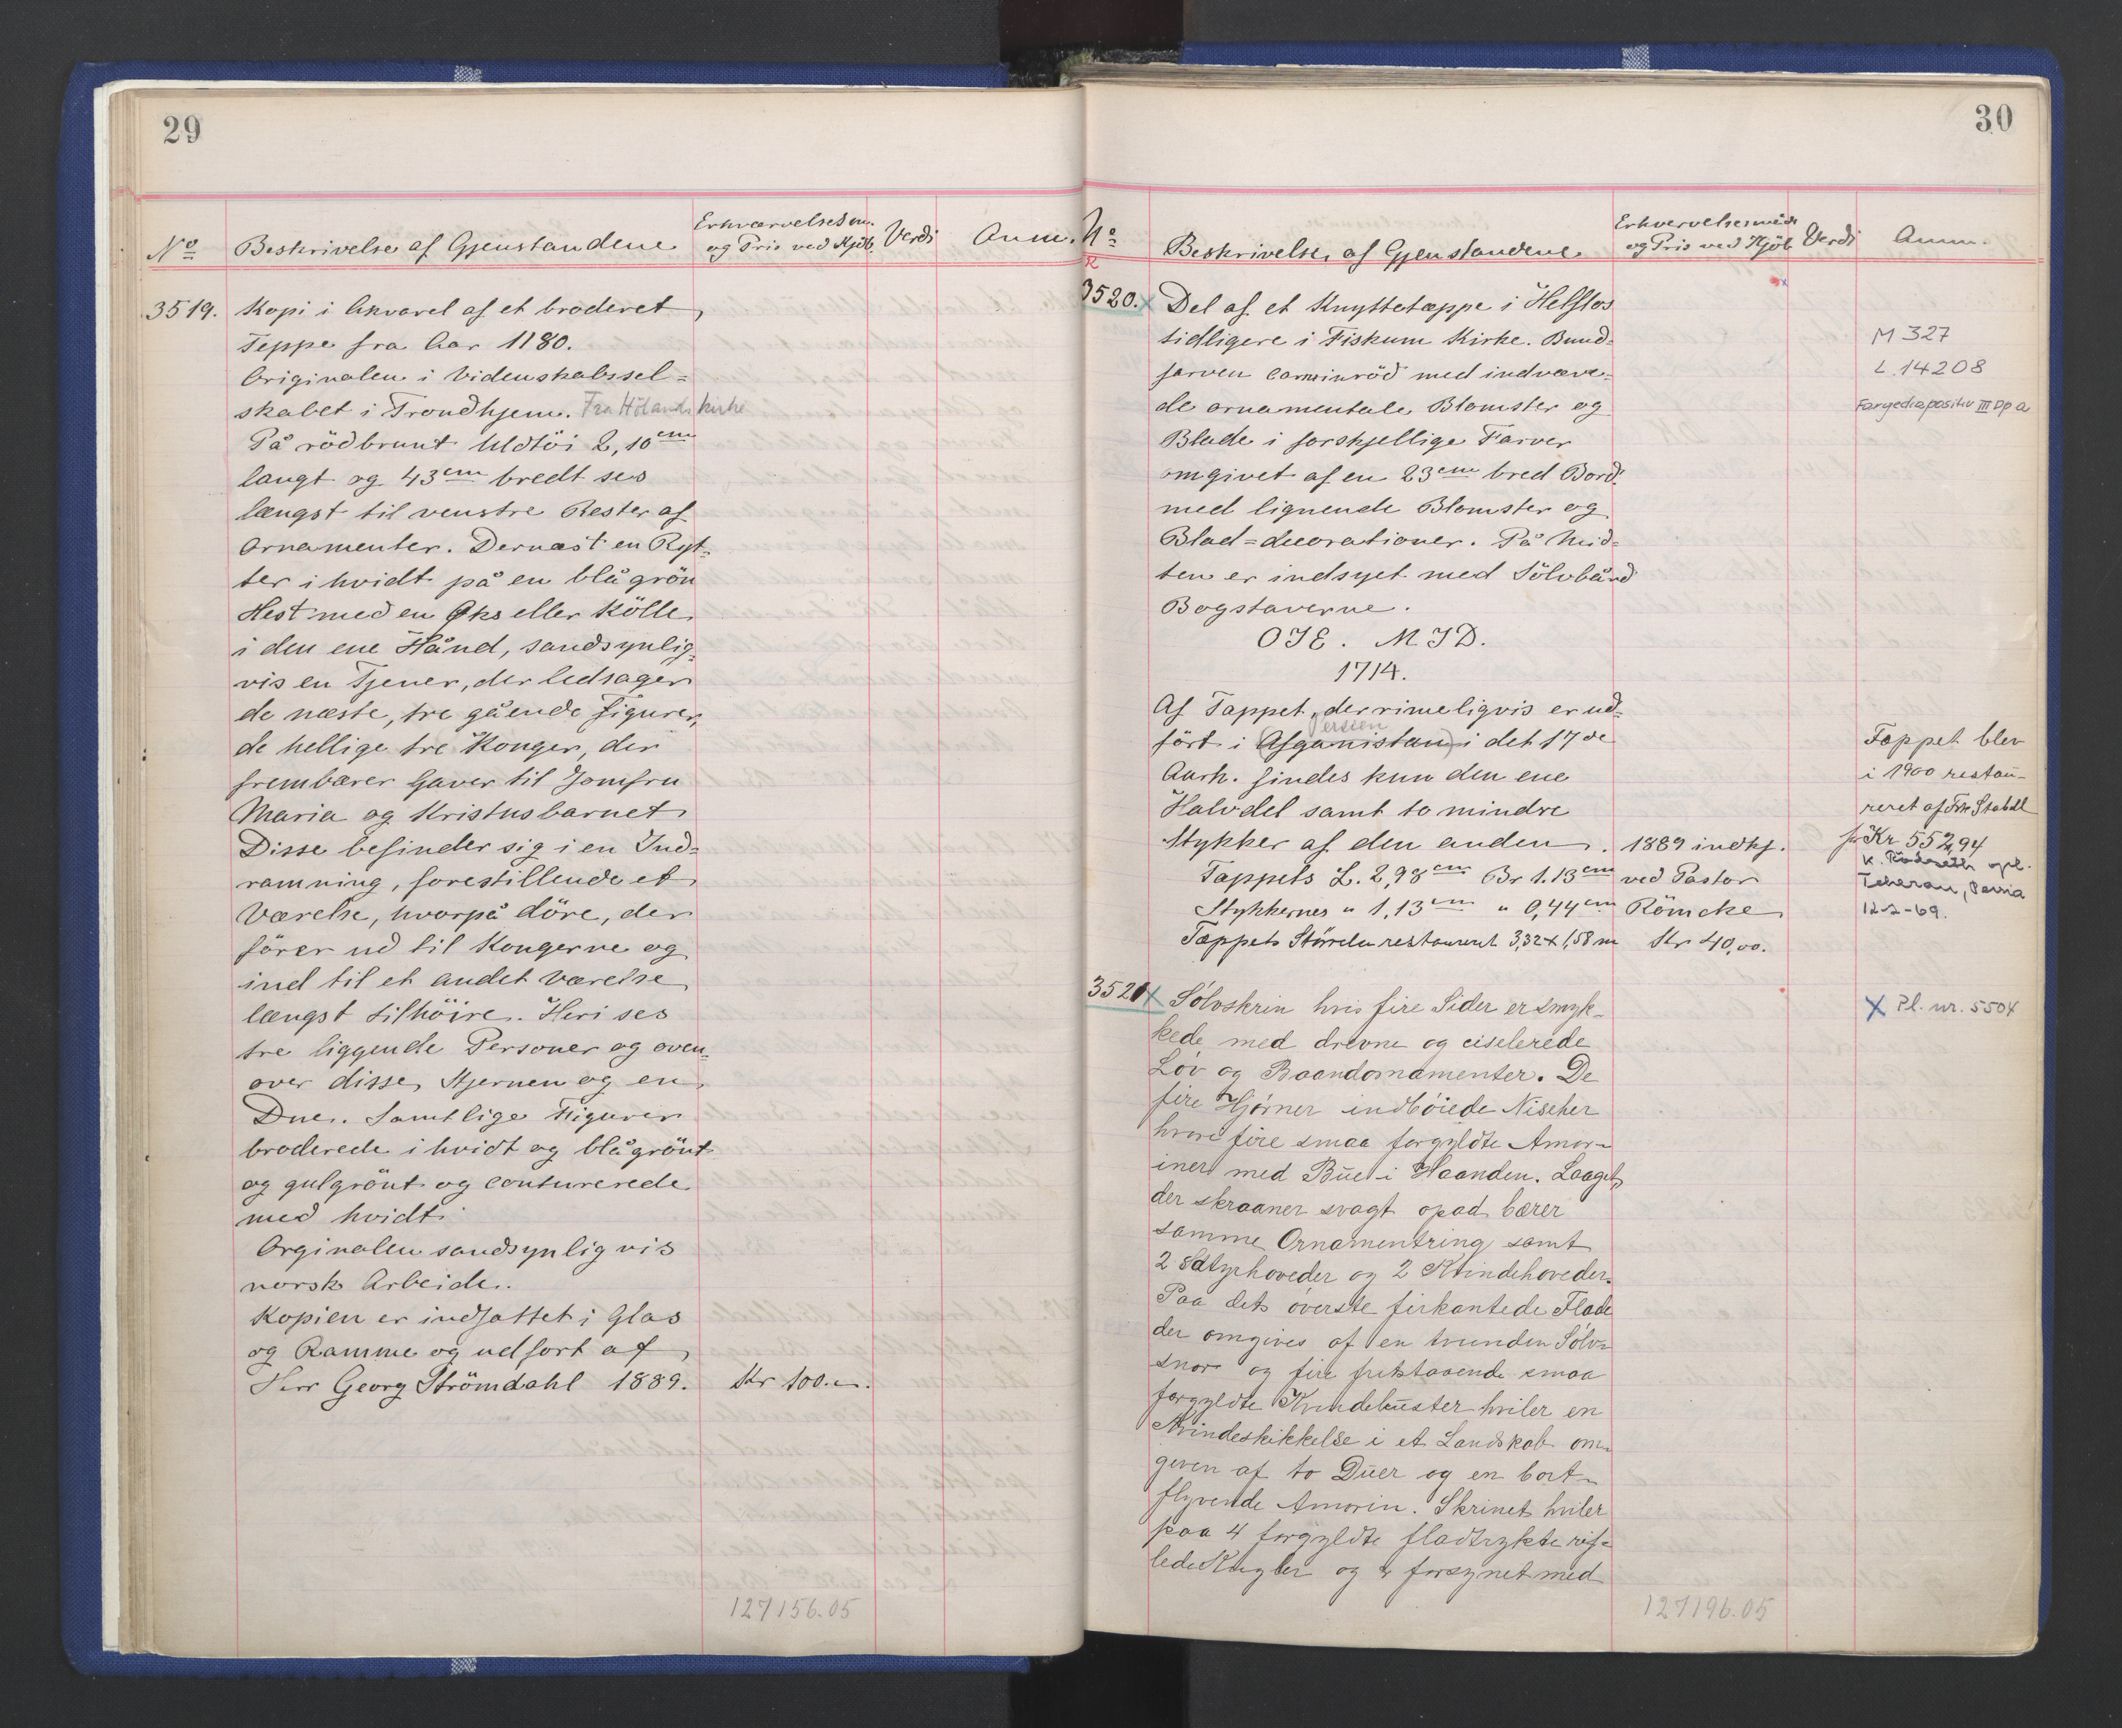 29
No
Beskrivelse af Gjenstandene
Erhværvelsesm.
og Pris ved Kjöb.
Verdi
Anm.
3519.
Kopi i Akvarel af et broderet
Teppe fra Aar 1180.
Originalen i Videnskabssel=
skabet i Trondhjem. Fra Hölands kirke
På rödbrunt Uldtöi 2,10 cm
langt og 43 cm bredt ses
længst til venstre Rester af
Ornamenter. Dernæst en Ryt=
ter i hvidt på en blågrön
Hest med en Øks eller Kölle
i den ene Hånd, sandsynlig=
vis en Tjener, der ledsager
de næste, tre gående Figurer,
de hellige tre Konger, der
frembærer Gaver til Jomfru
Maria og Kristusbarnet
Disse befinder sig i en Ind=
ramning, forestillende et
Værelse, hvorpå döre, der
förer ud til Kongerne og
ind til et andet Værelse
længst tilhöire. Heri ses
tre liggende Personer og oven=
over disse, Stjernen og en
Due. Samtlige Figurer
broderede i hvidt og blågrönt
og gulgrönt og conturerede
med hvidt.
Orginalen sandsynligvis
norsk Arbeide.
Kopien er indfattet i Glas
og Ramme og udfort af
Herr Georg Strömdahl 1889.
Kr 100.
127156.05
30
No
Beskrivelse af Gjenstandene
Erhvervelsesmåde
og Pris ved Kjöb
Verdi
Anm.
3520. x
Del af et Knyttetæppe i Helflos
tidligere i Fiskum Kirke. Bund=
farven carminröd med indvæve=
de ornamentale Blomster og
Blade i forskjellige Farver
omgivet af en 23 cm bred Bord.
med lignende Blomster og
Blad=decorationer. På Mid=
ten er indsyet med Sölvbånd
Bogstaverne.
OIE. MID.
1714.
Af Tæppet, der rimeligvis er ud=
Persien
fört i (Afganistan) i det 17de
Aarh. findes kun den ene
Halvdel samt to mindre
Stykker af den anden.
Tæppets L. 2,98 cm Br 1.13 cm
Stykkernes " 1,13 cm " 0,44 cm
Tæppets Störrelse restaureret 3,32 x 1,58 m
1889 indkj.
ved Pastor
Römcke
Kr 40,00.
M 327
L. 14208
Fargediapositiv III Dp a
Tæppet blev
i 1900 restau-
reret af Frk Stabell
for Kr 552,94
K. Rödseth opl.
Teheran, Persia
12-2-69.
3521 x
Sölvskrin hvis fire Sider er smyk-
kede med drevne og ciselerede
Löv og Baandornamenter. De
fire Hjörner indböiede Nischer
hvori fire smaa forgyldte Amor-
iner med Bue i Haanden. Laaget,
der skraaner svagt opad bærer
samme Ornamentring samt
2 Satyrhoveder og 2 Kvindehoveder.
Paa dets överste firkantede Flade
der omgives af en tvunden Sölv-
snor og fire fritstaaende smaa
forgyldte Kvindebuster hviler en
Kvindeskikkelse i et Landskab om-
given af to Duer og en bort-
flyvende Amorin. Skrinet hviler
paa 4 forgyldte fladtrykte rif-
lede Kugler og er forsynet med
x Pl. nr. 5504
127196.05